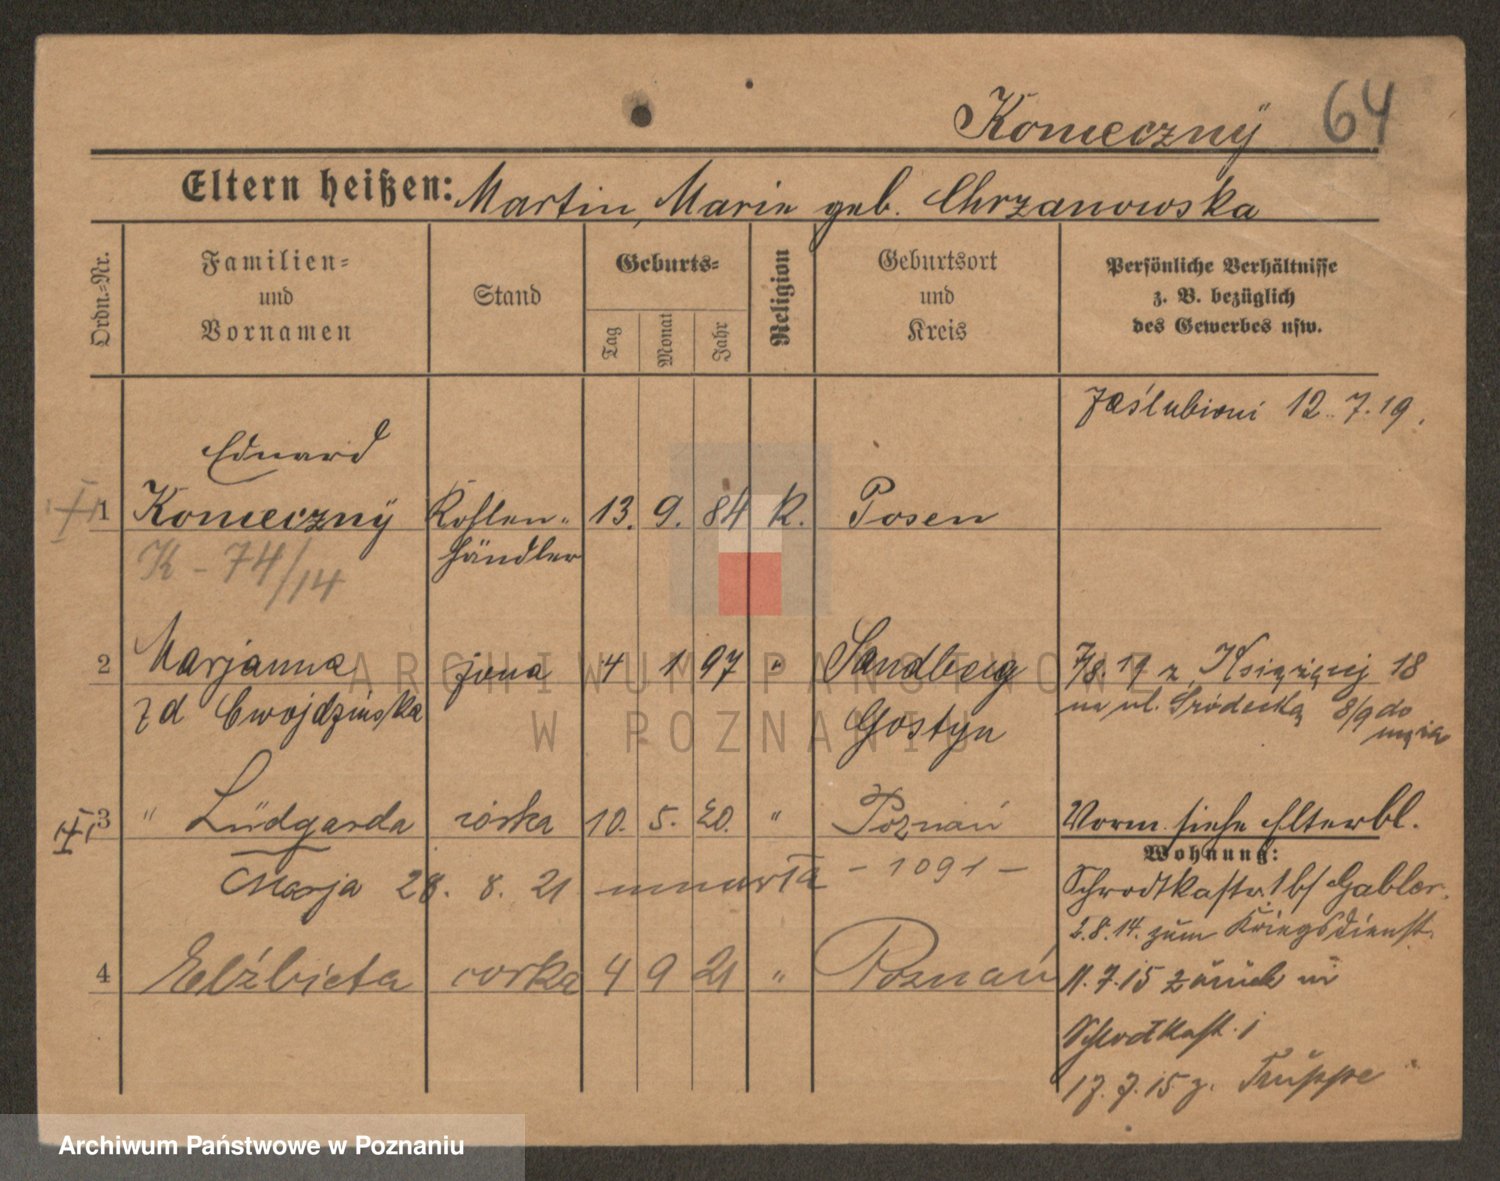 Konieczny 64
Eltern heißen: Martin, Marie geb. Chrzanowska
Ordn.-Nr.
Familien-
und
Vornamen
Stand
Geburts-
Tag
Monat
Jahr
Religion
Geburtsort
und
Kreis
Persönliche Verhältnisse
z. B. bezüglich
des Gewerbes usw.
zaślubieni 12.7.19.
Eduard
1 Konieczny Kohlen- 13. 9. 84 K. Posen
K-74/14 händler
2 Marjanna żona 4 1 97 " Sandberg 7/8.19 z Książęcej 18
zd Cwojdzińska Gostyn na ul. Śródecką 8/9 do
męża
3 " Lüdgarda córka 10. 5. 20. " Poznań Vorm. siehe Elterbl.
Wohnung:
Marja 28. 8. 21 umarła - 1091 - Schrodkastr. 1 b/ Gabler.
2.8.14. zum Kriegsdienst.
4 Elżbieta córka 4 9 21 " Poznań 11.7.15 zurück in
Schrodkast. 1
17.7.15 z. Truppe
ARCHIWUM PAŃSTWOWE
W POZNANIU
Archiwum Państwowe w Poznaniu